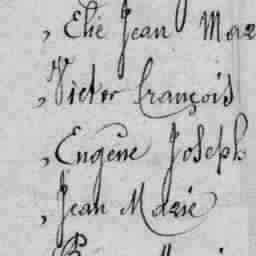 , Elie Jean Mar
, Victor françois
, Eugène Joseph
, Jean Marie